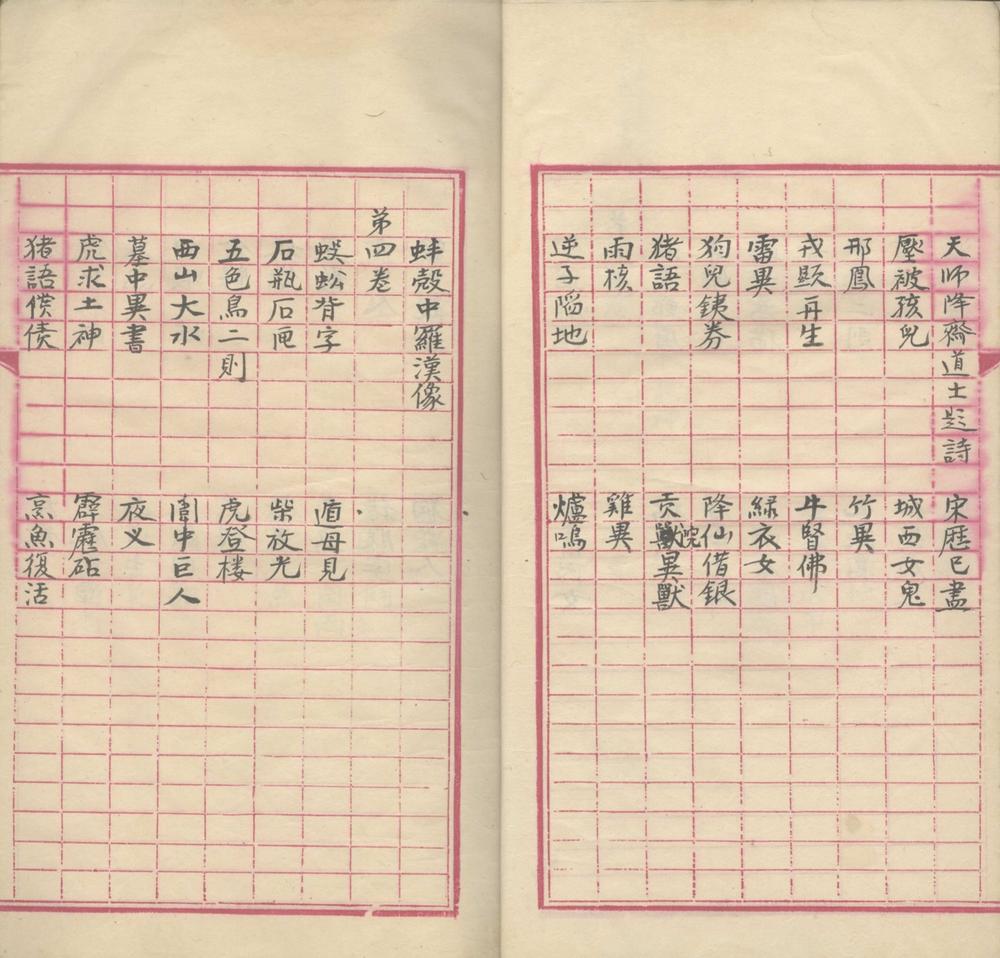 天師降齋道士題詩　宋歷已盡
壓被孩兒　城西女鬼
邢鳳　竹異
戎顯再生　牛腎佛
雷異　綠衣女
狗兒銕券　降仙借銀
猪語　貢猊異獸
雨核　雞異
逆子陷地　爐鳴
蚌殼中羅漢像
第四卷
蜈蚣背字　遁母見
石瓶石匣　柴放光
五色鳥二則　虎登楼
西山大水　闈中巨人
墓中異書　夜义
虎求土神　霹靂砧
猪語償债　烹魚復活